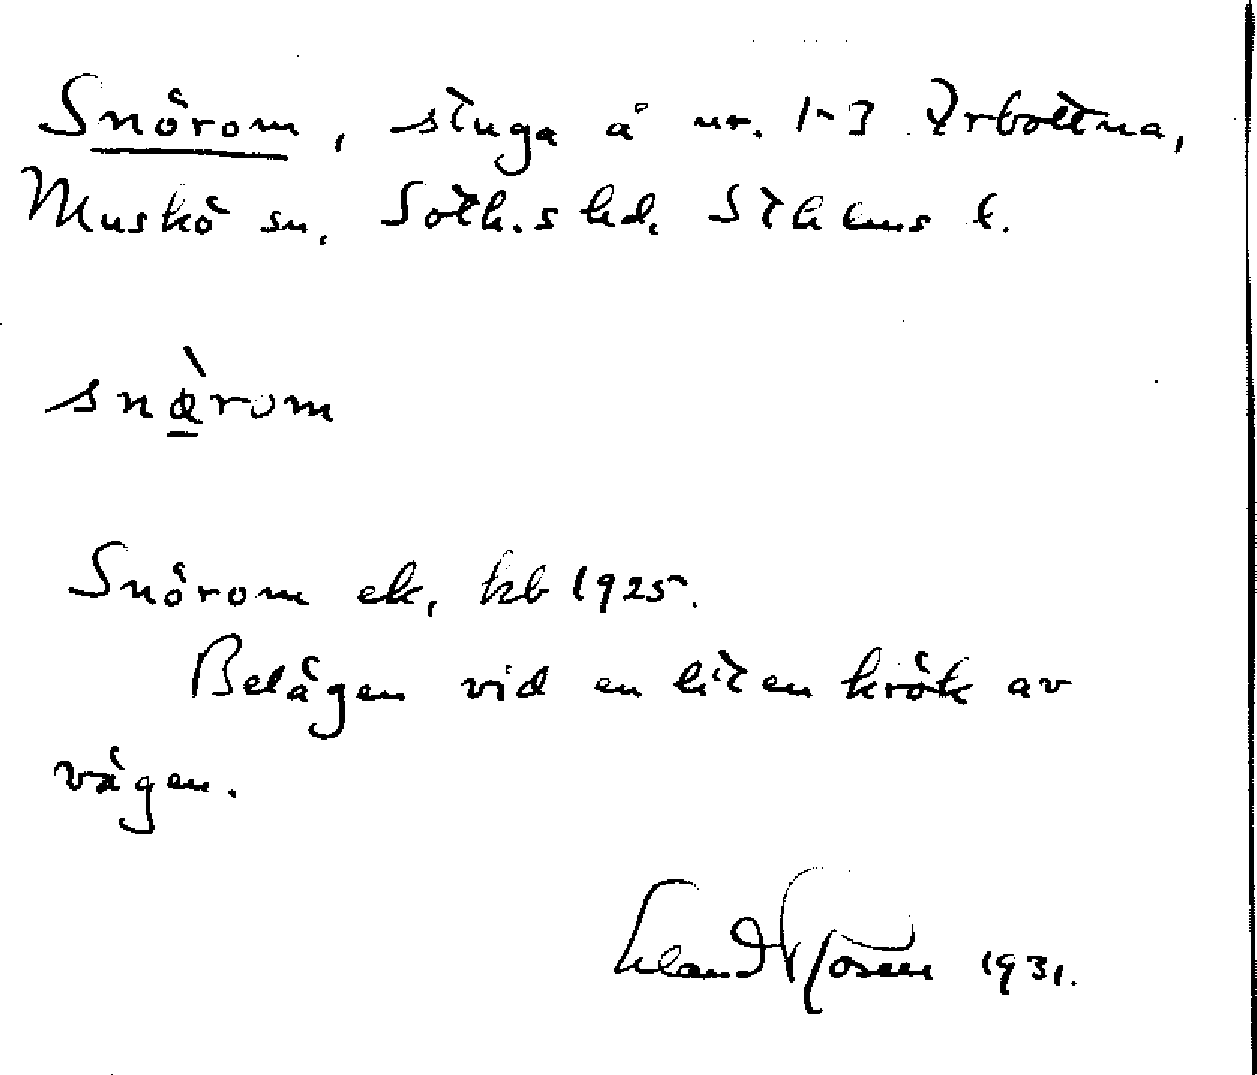 Snörom, stuga å nr. 1-3 Yrbottna,
Muskö sn, Soth.s hd, Sthlms l.
snœ̀rom
Snörom ek, kb 1925.
Belägen vid en liten krök av
vägen.
1931.